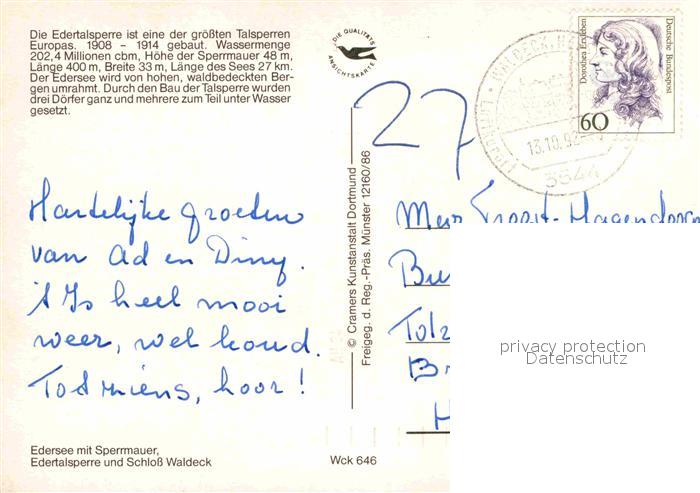 Die Edertalsperre ist eine der größten Talsperren
Europas. 1908 – 1914 gebaut. Wassermenge
202,4 Millionen cbm, Höhe der Sperrmauer 48 m,
Länge 400 m, Breite 33 m, Länge des Sees 27 km.
Der Edersee wird von hohen, waldbedeckten Ber-
gen umrahmt. Durch den Bau der Talsperre wurden
drei Dörfer ganz und mehrere zum Teil unter Wasser
gesetzt.
DIE QUALITÄTS
ANSICHTSKARTE
27
Luftkurort · WALDECK,
13.10.92
3544
Dorothea Erxleben
Deutsche Bundespost
60
Hartelijke groeten
van Ad en Diny.
't Is heel mooi
weer, wel koud.
Tot ziens, hoor!
© Cramers Kunstanstalt Dortmund
Freigeg. d. Reg.-Präs. Münster 12160/86
Troost-Hagendoorn
Bu
Tol
B
H
privacy protection
Datenschutz
Edersee mit Sperrmauer,
Edertalsperre und Schloß Waldeck
Wck 646